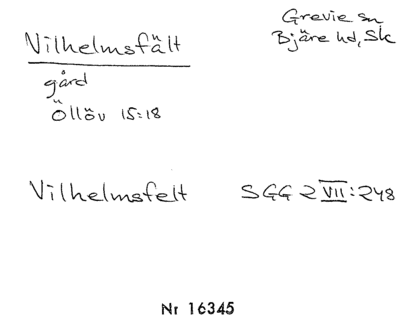 Grevie sn
Bjäre hd, Sk
Vilhelmsfält
gård
Öllöv 15:18
Vilhelmsfelt SGG 2 VII:248
Nr 16345